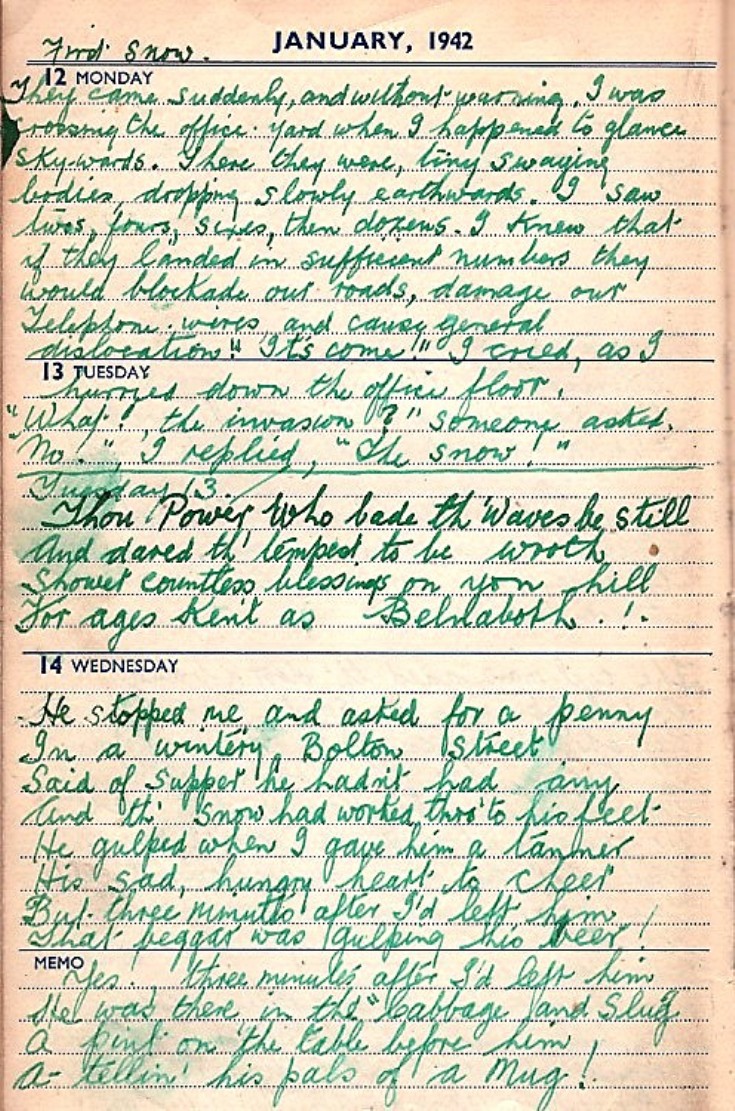 JANUARY, 1942
First Snow.
12 MONDAY
They came suddenly, and without warning, I was
crossing the office yard when I happened to glance
skywards. There they were, tiny swaying
bodies, dropping slowly earthwards. I saw
twos, fours, sixes, then dozens. I knew that
if they landed in sufficient numbers they
would blockade our roads, damage our
Telephone wires and cause general
dislocation! "It's come!" I cried, as I
13 TUESDAY
hurried down the office floor.
"What!, the invasion?" someone asked.
"No.", I replied, "The snow!"
Tuesday 13.
Thou Power Who bade th' waves be still
And dared th' tempest to be wroth
Shower countless blessings on yon hill
For ages Kent as Belnaboth.!.
14 WEDNESDAY
He stopped me and asked for a penny
In a wintery Bolton Street
Said of supper he hadn't had any
And th' snow had worked thro' to his feet
He gulped when I gave him a tanner
His sad, hungry heart to cheer
But three minutes after I'd left him
That beggar was gulping his beer!
MEMO
Yes!, three minutes after I'd left him
He was there in the "Cabbage and Slug
A pint on the table before him
A-tellin' his pals of a Mug!